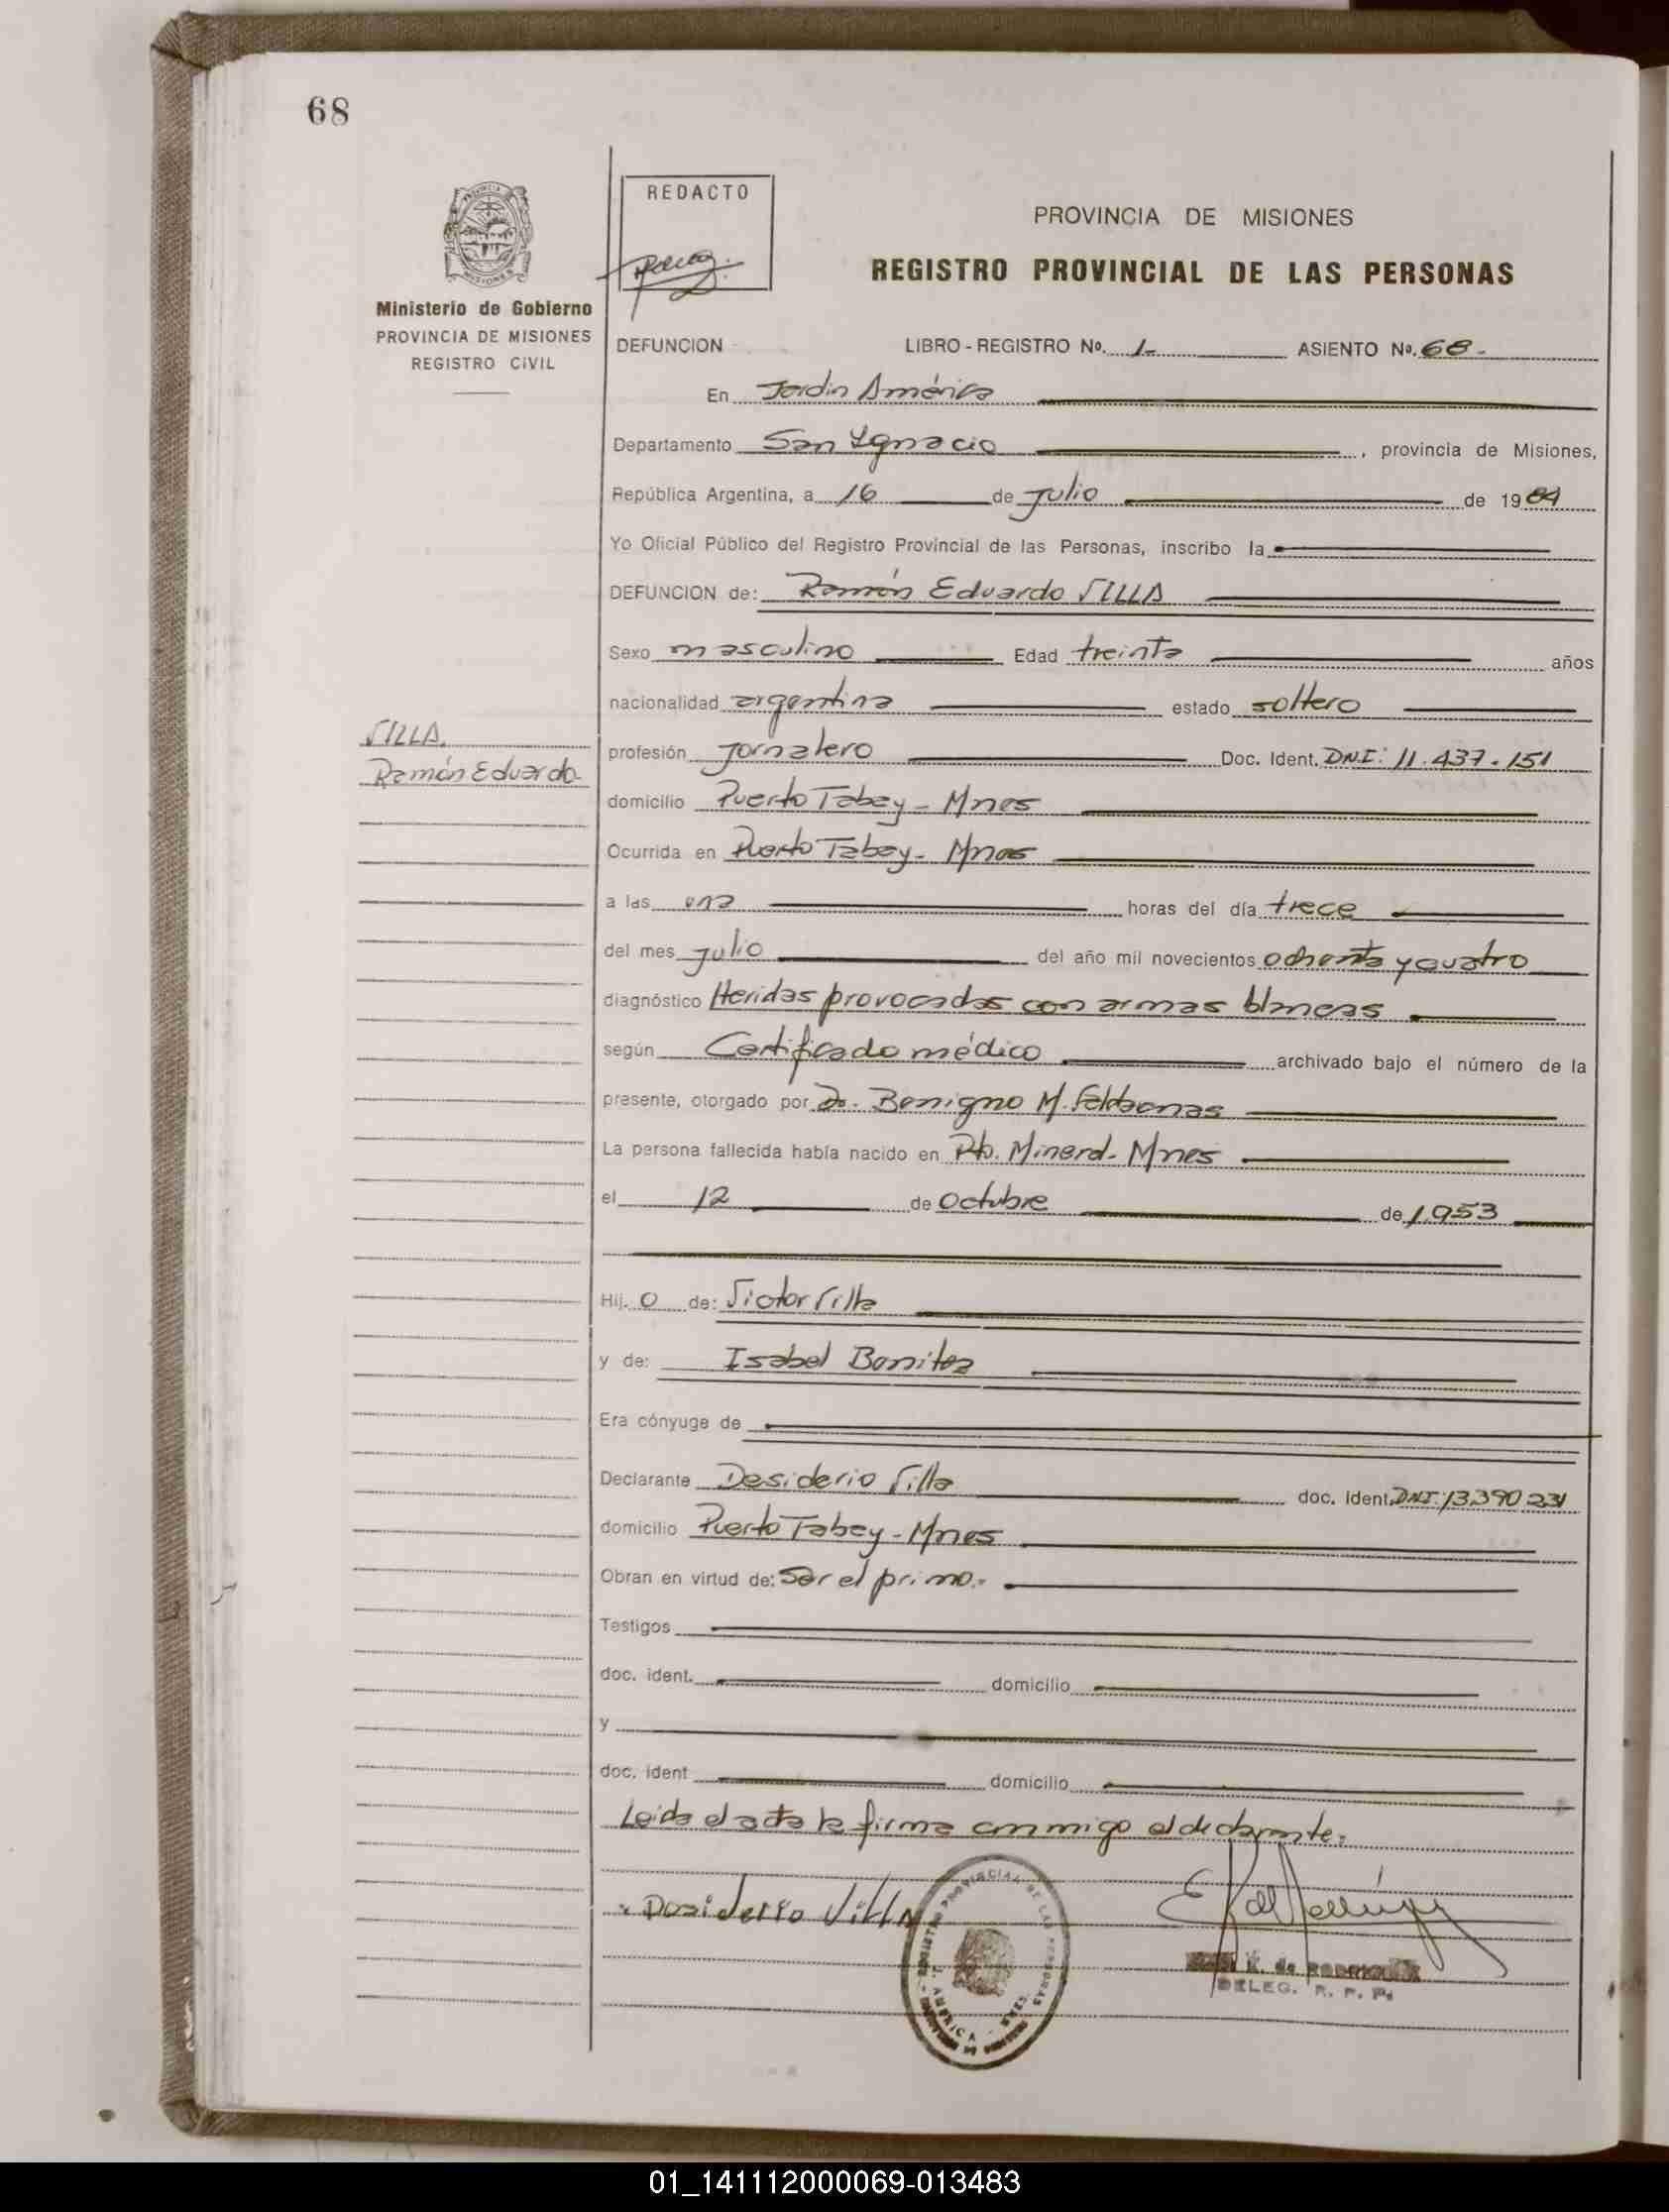 68
REDACTO
PROVINCIA DE MISIONES
REGISTRO PROVINCIAL DE LAS PERSONAS
Ministerio de Gobierno
PROVINCIA DE MISIONES
REGISTRO CIVIL
DEFUNCION LIBRO - REGISTRO Nº. 1- ASIENTO Nº. 68-
En Jardin América
Departamento San Ignacio , provincia de Misiones,
República Argentina, a 16 de Julio de 1984
Yo Oficial Público del Registro Provincial de las Personas, inscribo la
DEFUNCION de: Ramón Eduardo VILLA
Sexo masculino Edad treinta años
nacionalidad argentina estado soltero
VILLA,
Ramón Eduardo-
profesión Jornalero Doc. Ident. DNI: 11.437.151
domicilio Puerto Tabay - Mnes
Ocurrida en Puerto Tabay - Mnes
a las una horas del día trece
del mes Julio del año mil novecientos ochenta y cuatro
diagnóstico Heridas provocadas con armas blancas
según Certificado médico archivado bajo el número de la
presente, otorgado por Dr. Benigno M.
La persona fallecida había nacido en Pto. Mineral - Mnes
el 12 de Octubre de 1.953
Hij. o de: Victor Villa
y de: Isabel Benitez
Era cónyuge de
Declarante Desiderio Villa doc. ident. DNI: 13.390.231
domicilio Puerto Tabay - Mnes
Obran en virtud de: Ser el primo.-
Testigos
doc. ident. domicilio
y
doc. ident domicilio
Leida el acta la firma conmigo el declarante.
Desiderio Villa
DELEG. R. P. P.
01_141112000069-013483